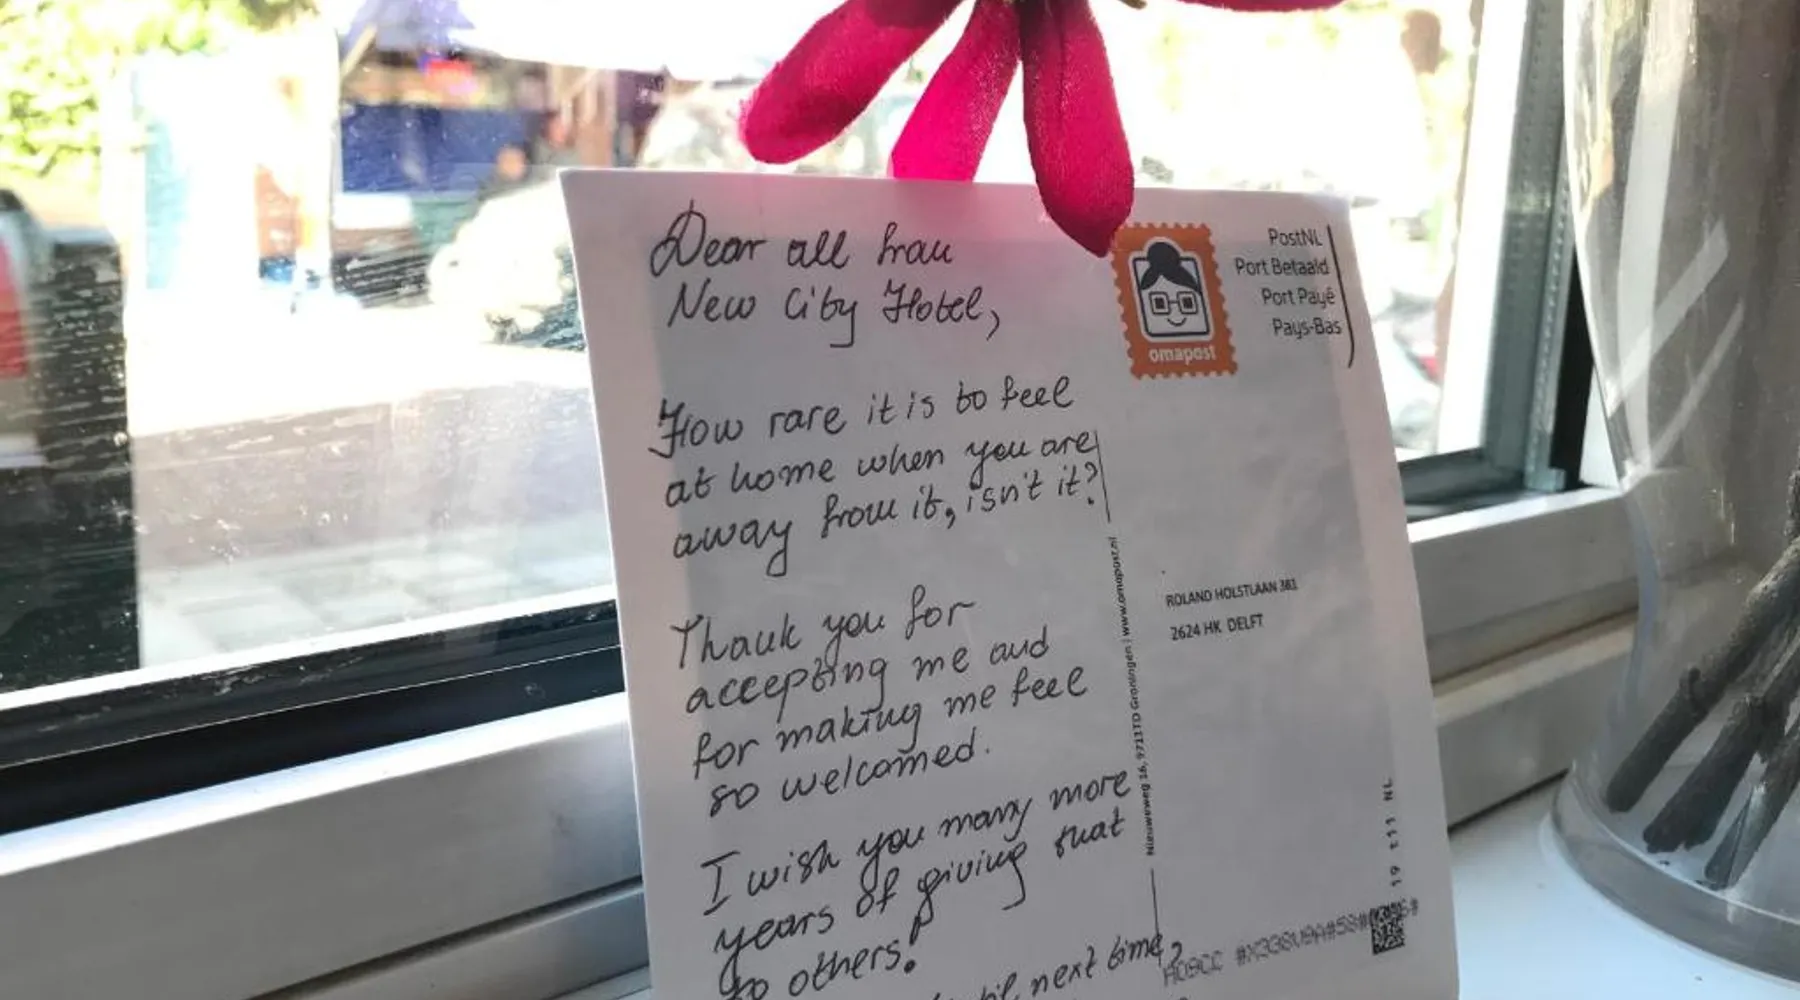 Dear all from
New City Hotel,
How rare it is to feel
at home when you are
away from it, isn't it?
Thank you for
accepting me and
for making me feel
so welcomed.
I wish you many more
years of giving that
to others!
next time,
omapost
PostNL
Port Betaald
Port Payé
Pays-Bas
Nieuweweg 16, 9711TD Groningen | www.omapost.nl
ROLAND HOLSTLAAN 381
2624 HK DELFT